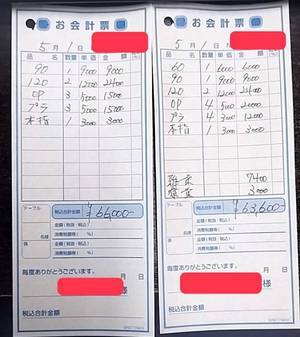 お会計票
5月1日
品名 数量 単価 金額
90 1 9000 9000
120 2 12000 24000
OP 3 5000 15000
プラ 3 5000 15000
本指 1 3000 3000
テーブル 税込合計金額 ¥66,000-
金額(税抜・税込)
名様 消費税額等( %)
係 金額(税抜・税込)
消費税額等( %)
毎度ありがとうございます。 月 日
様
税込合計金額
お会計票
5月1日
品名 数量 単価 金額
60 1 6000 6000
90 1 9000 9000
120 2 12000 24000
OP 4 5000 20000
プラ 4 3000 12000
本指 1 3000 3000
雑費 7400
寮費 3000
テーブル 税込合計金額 ¥63,600-
金額(税抜・税込)
名様 消費税額等( %)
係 金額(税抜・税込)
消費税額等( %)
毎度ありがとうございます。 月 日
様
税込合計金額